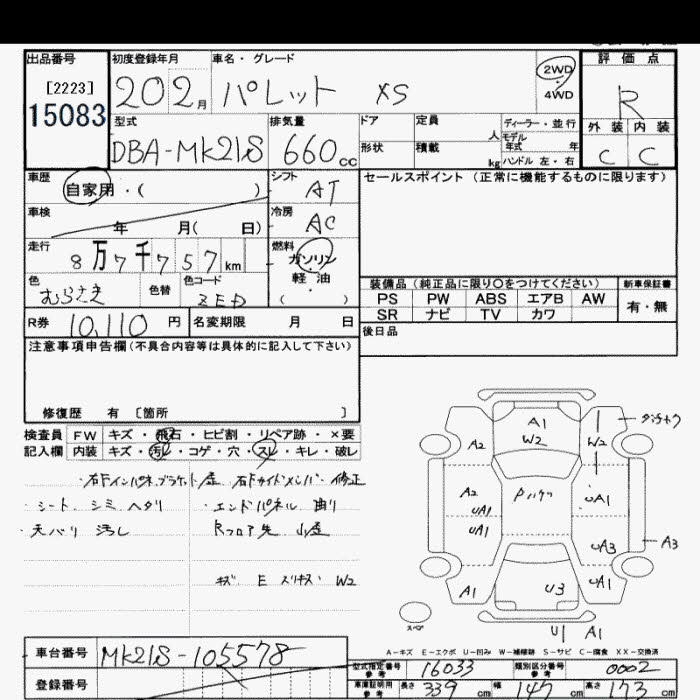 出品番号
[2223]
15083
初度登録年月
20 2 月
車名・グレード
パレット XS
2WD
・
4WD
評価点
R
外装 内装
C C
型式
DBA-MK21S
排気量
660 cc
ドア
形状
定員
人
積載
kg
ディーラー・並行
モデル
年式 年
ハンドル 左・右
車歴
自家用・( )
シフト
AT
セールスポイント(正常に機能するものに限ります)
車検
年 月( 日)
冷房
AC
走行
8万7千757km
燃料
ガソリン
・
軽油
( )
色
むらさき
色替
色コード
ZED
装備品(純正品に限り○をつけてください)
新車保証書
PS PW ABS エアB AW
SR ナビ TV カワ
有・無
R券 10,110 円
名変期限 月 日
後日品
注意事項申告欄(不具合内容等は具体的に記入して下さい)
修復歴 有 [箇所 ]
検査員
記入欄
FW キズ・飛石・ヒビ割・リペア跡・×要
内装 キズ・汚レ・コゲ・穴・スレ・キレ・破レ
・右Fインパネ、ブラケット歪 右Fサイドメンバー修正
・シート シミ ヘタリ
・エンドパネル 曲り
・天バリ 汚し
Rフロア先 小歪
キズ E スリキズ W2
A1
W2
A2
W2
A2
UA1
UA1
UA1
UA3
A3
A1
U3
UA1
U1 A1
スペア
A-キズ E-エクボ U-凹み W-補修跡 S-サビ C-腐食 XX-交換済
車台番号 MK21S-105578
登録番号
型式指定番号
参考
16033
類別区分番号
参考
0002
車庫証明用
参考
長さ 339 cm 幅 147 cm 高さ 173 cm